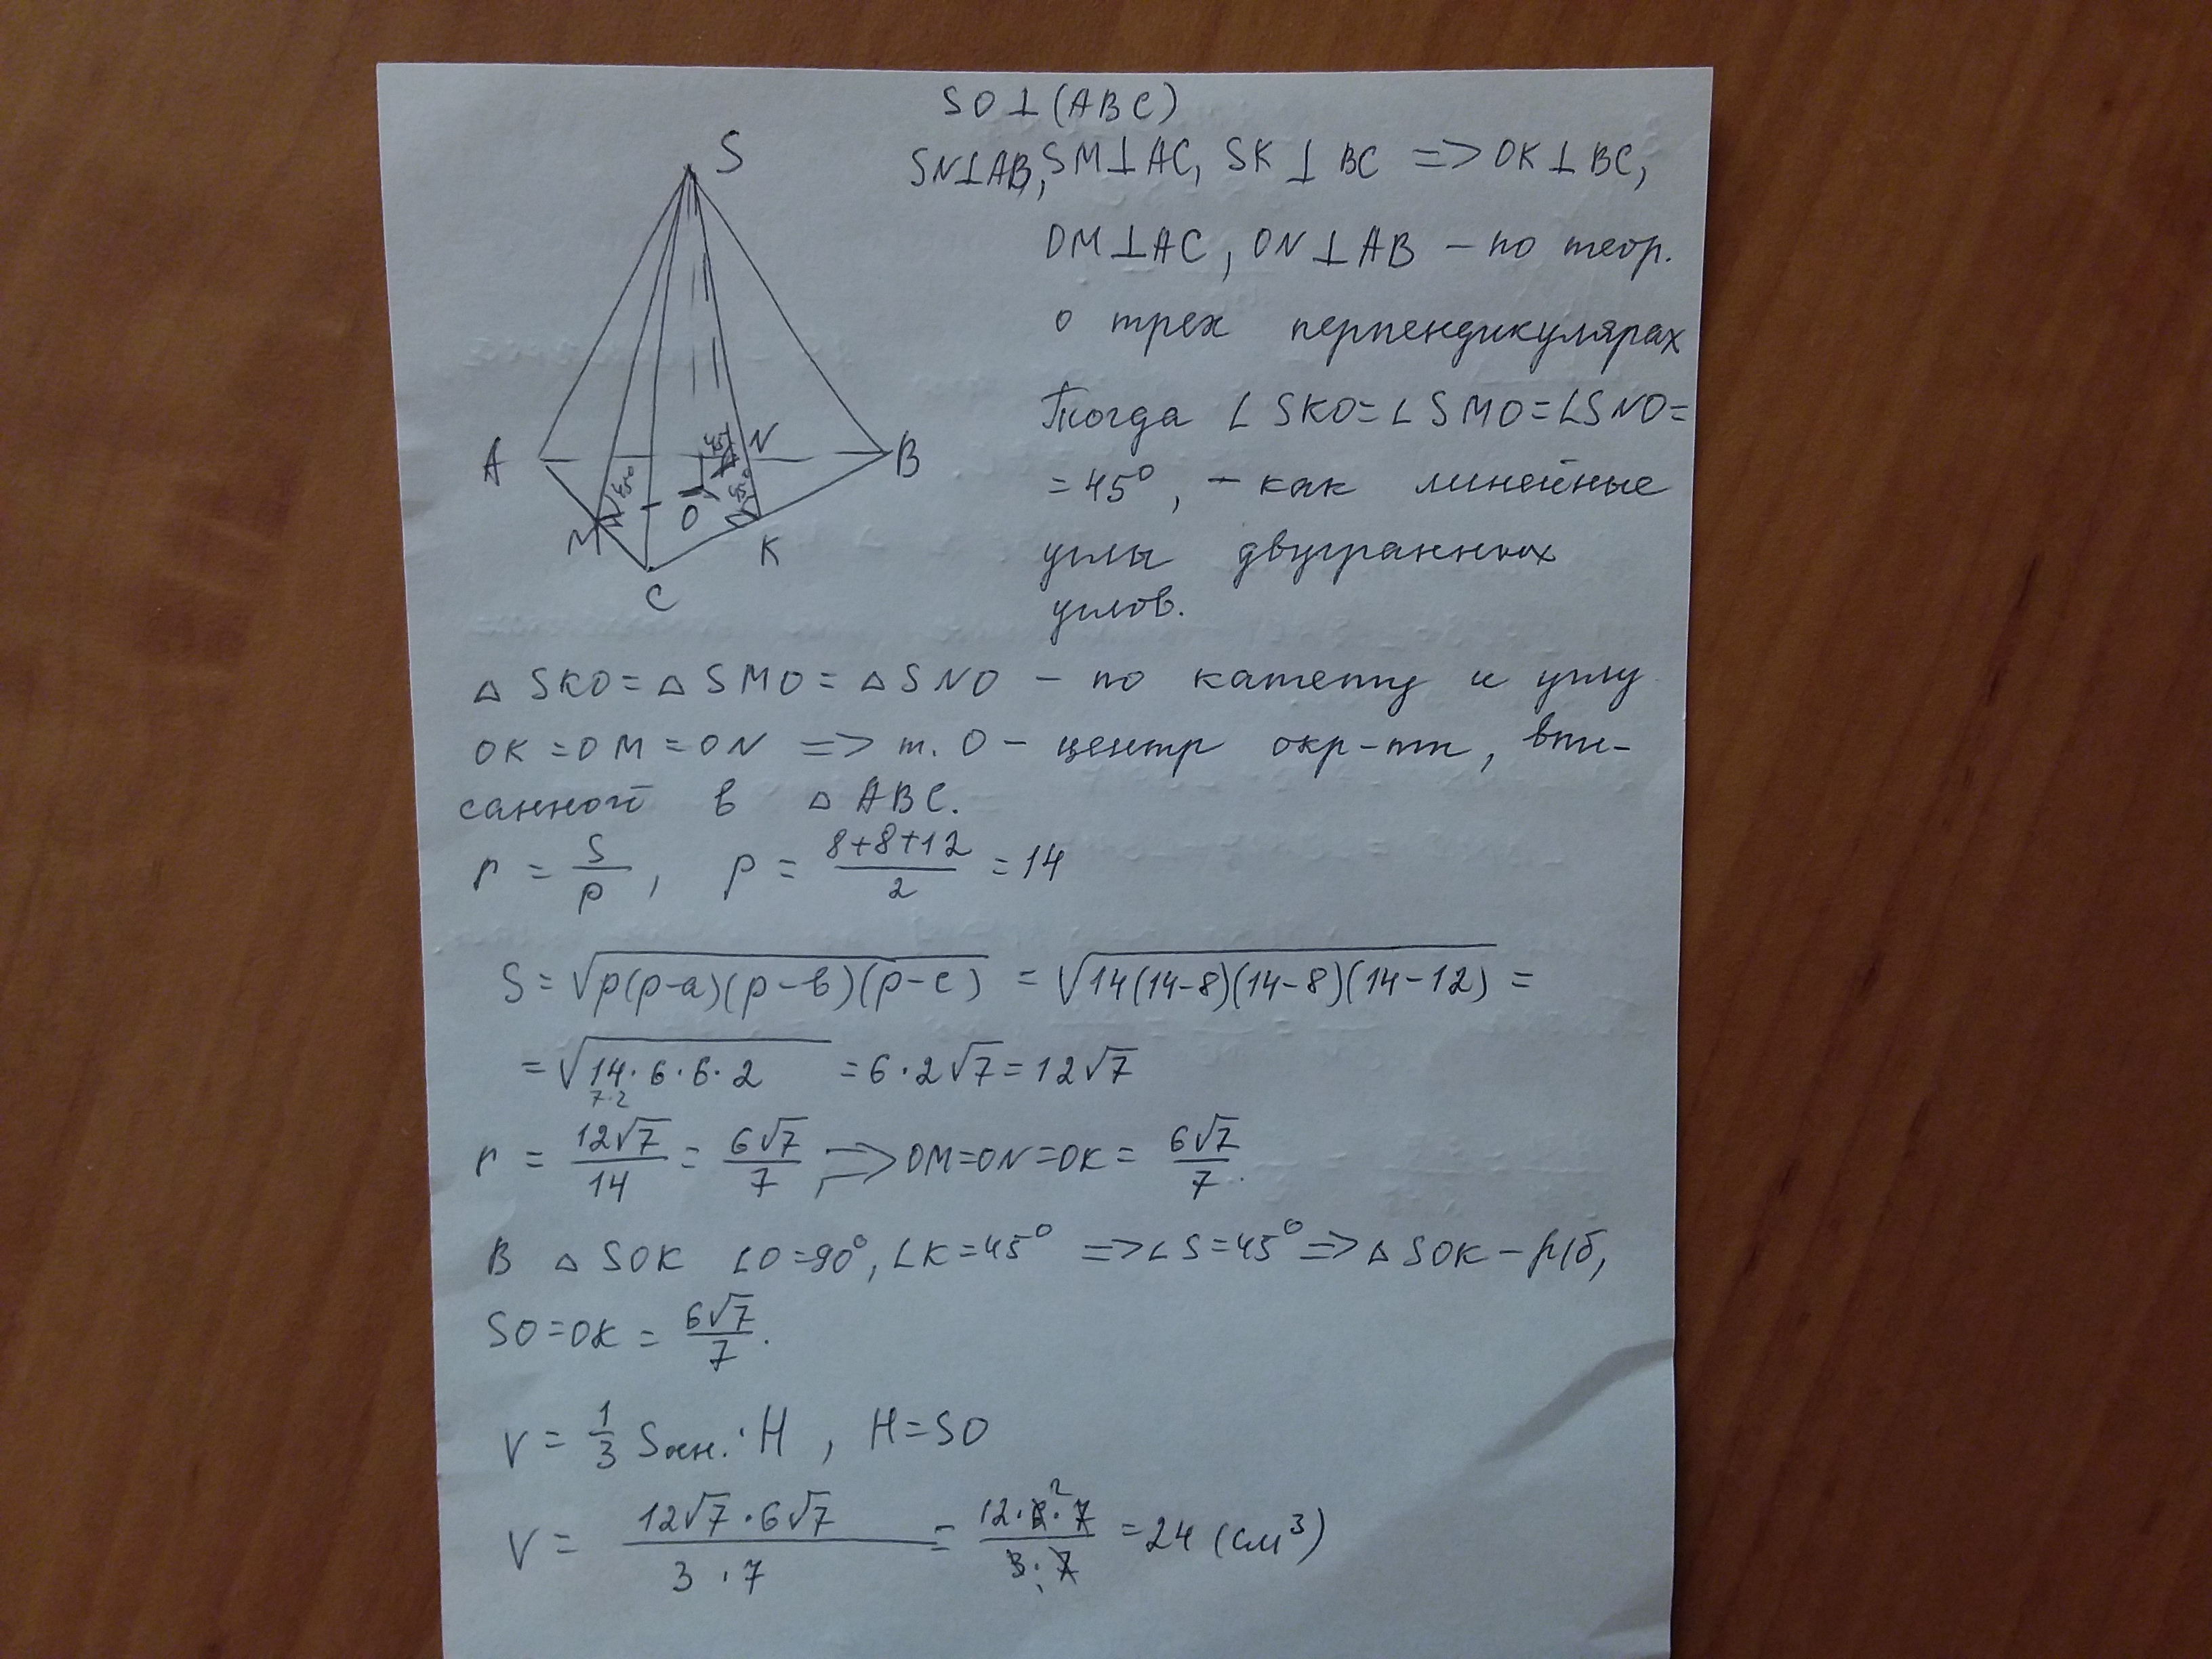 SO⊥(ABC)
SN⊥AB, SM⊥AC, SK⊥BC => OK⊥BC,
OM⊥AC, ON⊥AB – по теор.
о трех перпендикулярах
Тогда ∠SKO=∠SMO=∠SNO=
=45°, – как линейные
углы двугранных
углов.
S
A
45°
N
B
45°
45°
M
O
K
C
△SKO=△SMO=△SNO – по катету и углу
OK=OM=ON => т. O – центр окр-ти, впи-
санной в △ABC.
r = S/p, p = (8+8+12)/2 = 14
S = √(p(p-a)(p-в)(p-c)) = √(14(14-8)(14-8)(14-12)) =
= √(14·6·6·2) = 6·2√7 = 12√7
7·2
r = 12√7/14 = 6√7/7, => OM=ON=OK = 6√7/7.
В △SOK ∠O=90°, ∠K=45° => ∠S=45° => △SOK – р/б,
SO=OK = 6√7/7.
V = 1/3 Sосн.·H, H=SO
V = (12√7·6√7)/(3·7) = (12·6²·7)/(3·7) = 24 (см³)